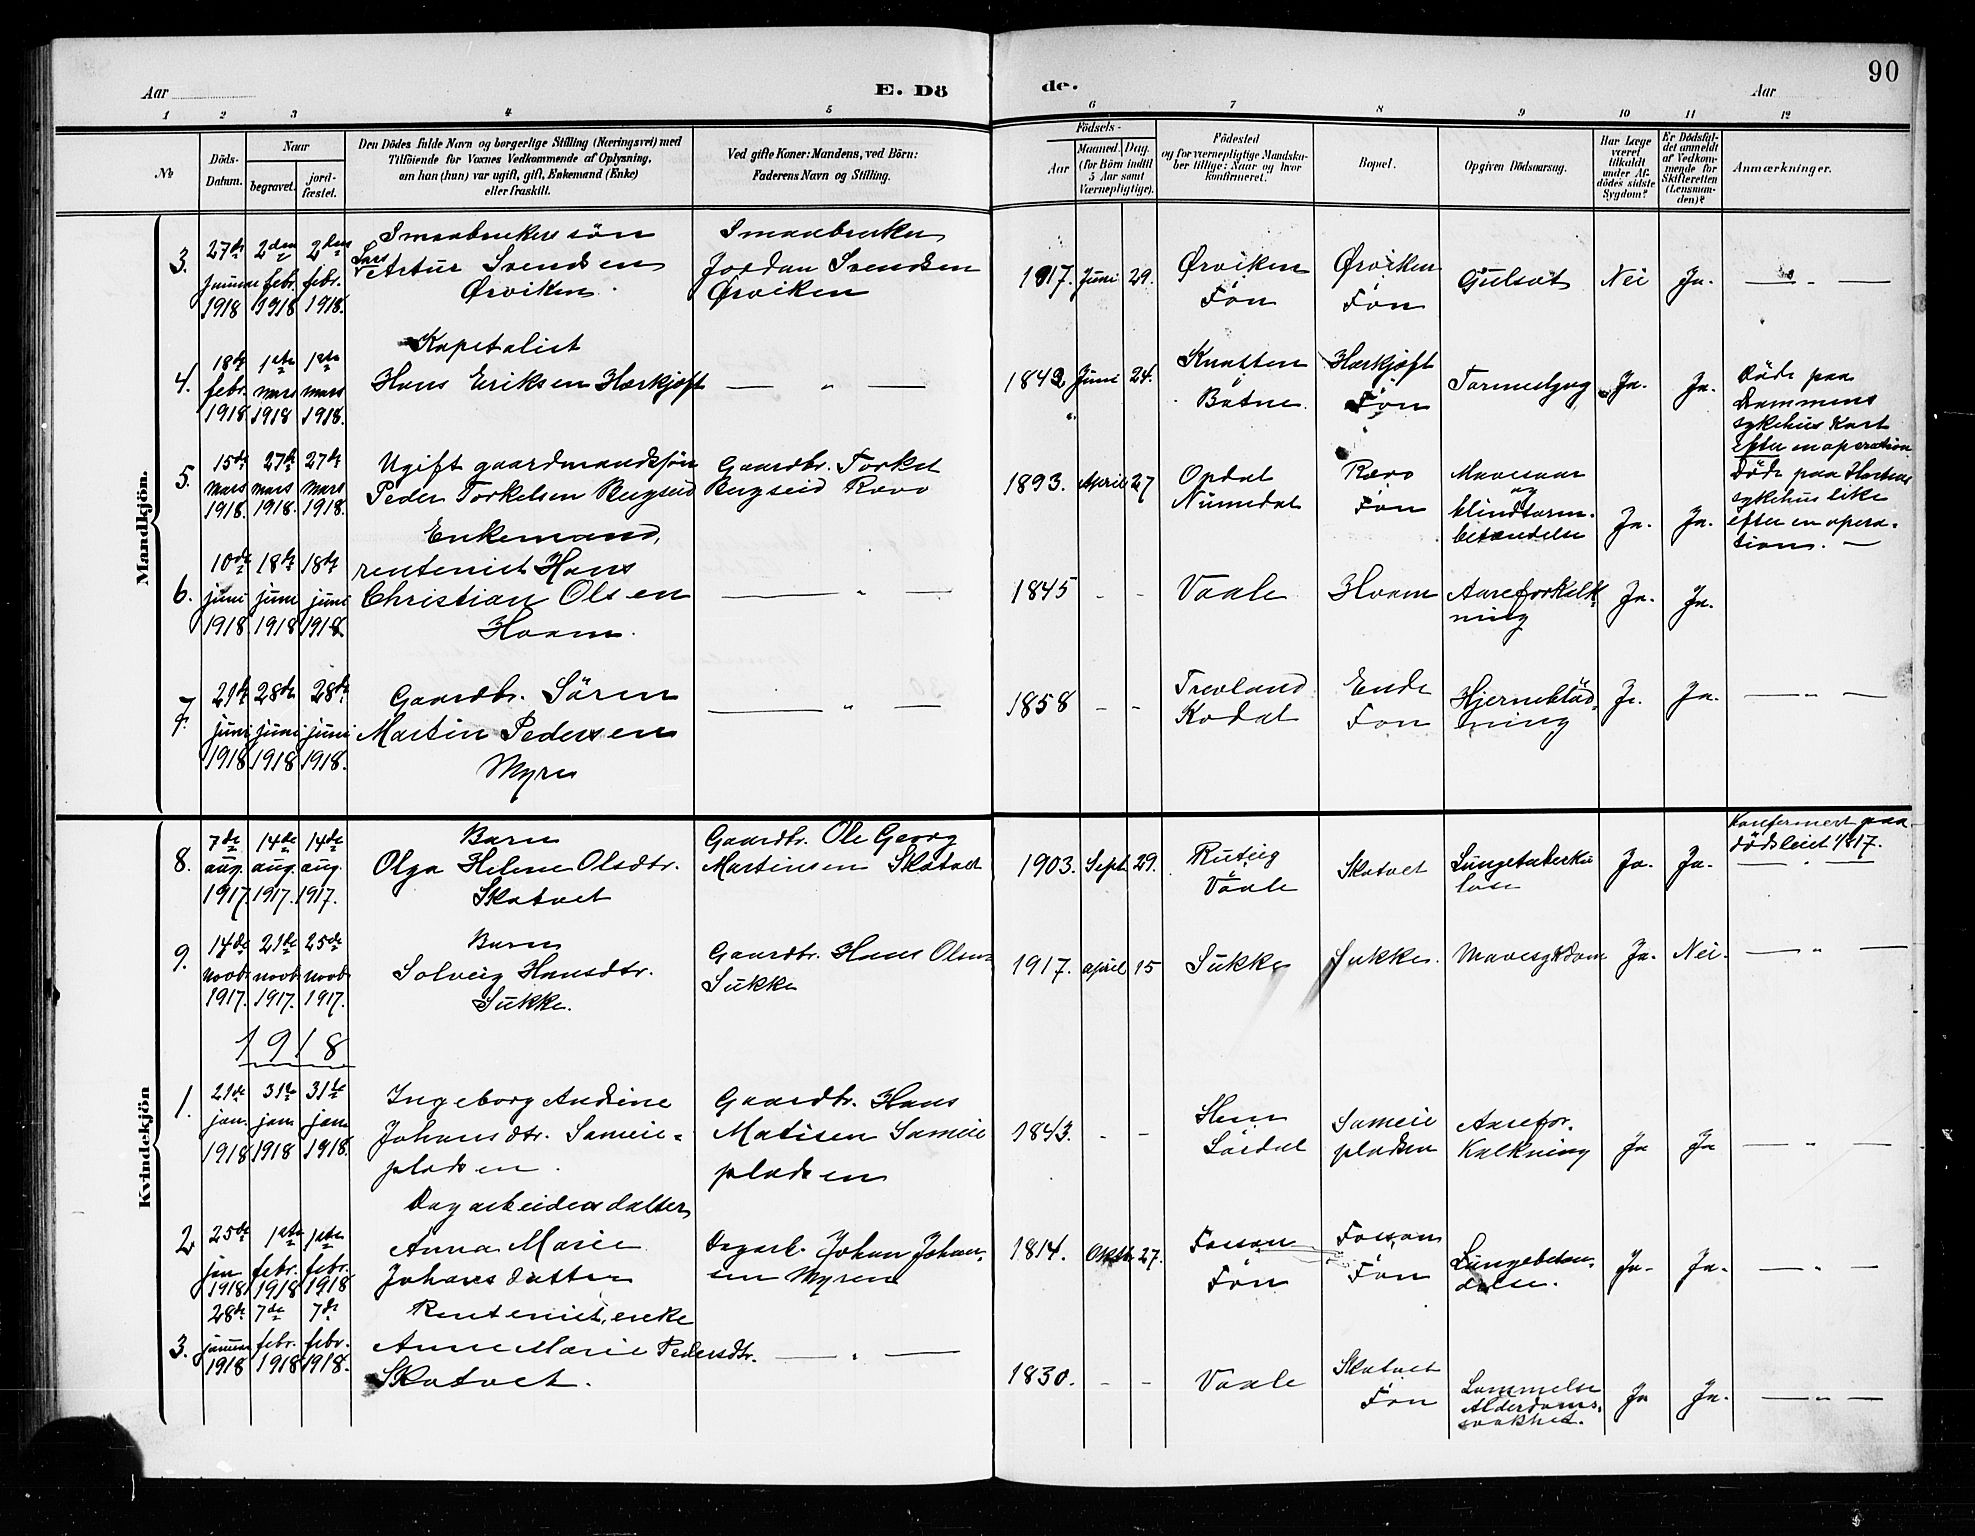 90
Aar
E. Dö
de.
Aar
1 2 3 4 5 6 7 8 9 10 11 12
No
Döds-
Datum.
Naar
begravet.
jord-
fæstet.
Den Dödes fulde Navn og borgerlige Stilling (Næringsvei) med
Tilföiende for Voxnes Vedkommende af Oplysning,
om han (hun) var ugift, gift, Enkemand (Enke)
eller fraskilt.
Ved gifte Koner: Mandens, ved Börn:
Faderens Navn og Stilling.
Födsels-
Aar
Maaned. Dag.
(for Börn indtil
5 Aar samt
Værnepligtige).
Födested
og for værnepligtige Mandska-
ber tillige: Naar og hvor
konfirmeret.
Bopæl.
Opgiven Dödsaarsag.
Har Læge
været
tilkaldt
under Af-
dödes sidste
Sygdom?
Er Dödsfal-
det anmeldt
af Vedkom-
mende for
Skifteretten
(Lensman-
den)?
Anmærkninger.
Mandkjön.
3.
27de
januar
1918
2den
febr.
1918
2den
febr.
1918.
Smaabrukers søn
Lars
Artur Svendsen
Ørviken.
Smaabruker
Jordan Svendsen
Ørviken
1917. Juni 29.
Ørviken
Fön
Ørviken
Fön
Gulsot
Nei
Ja.
— " —
4.
18de
febr.
1918
1ste
mars
1918
1ste
mars
1918.
Kapitalist
Hans Eriksen Hærkjøft
— " —
1842 Juni 24.
Knatten
Botne.
Hærkjøft
Fön
Tarmslyng
Ja.
Ja.
Døde paa
Drammens
sykehus kort
efter en operation
5.
15de
mars
1918.
27de
mars
1918.
27de
mars
1918.
Ugift gaardmandssøn
Peder Torkelsen Bugseid
Gaardbr. Torkel
Bugseid Rævo
1893. April 27
Opdal
Numedal
Rævo
Fön
Mavesaar
og
blindtarm-
betændelse
Ja.
Ja.
Døde paa Hortens
sykehus like
efter en opera-
tion. —
6.
10de
juni
1918
18de
juni
1918
18de
juni
1918
Enkemand,
rentenist Hans
Christian Olsen
Hoam.
— " —
1845 - -
Vaale
Hoam
Aareforkalk-
ning
Ja.
Ja.
7.
21de
juni
1918
28de
juni
1918
28de
juni
1918.
Gaardbr. Sören
Martin Pedersen
Myre
— " —
1858 - -
Trevland
Kodal
Ende
Fon
Hjerneblöd-
ning
Ja.
Ja.
— " —
Kvindekjön
8.
7de
aug.
1917
14de
aug.
1917.
14de
aug.
1917.
Barn
Olga Helene Olsdtr.
Skatvet
Gaardbr. Ole Georg
Martinsen Skatvet
1903. Sept. 29.
Rutig
Vaale
Skatvet
Lungetuberku
lose
Ja.
Ja.
Konfirmert paa
dödsleiet 1917.
— " —
9.
14de
novb.
1917.
21de
novb.
1917.
25de
novb.
1917.
Barn
Solveig Hansdtr.
Sukke.
Gaardbr. Hans Olsen
Sukke
1917. april 15
Sukke
Sukke.
Mavesykdom
Ja.
Nei.
— " —
1918
1.
21de
jan.
1918
31te
jan.
1918
31te
jan.
1918.
Ingeborg Andrine
Johansdtr. Sameie-
pladsen.
Gaardbr. Hans
Matisen Sameie
pladsen
1843. - -
Hem
Lardal
Sameie
pladsen
Aarefor-
kalkning
Ja
Ja
— " —
2
25de
jan
1918
1ste
febr.
1918
1ste
febr.
1918
Dagarbeiders datter
Anna Marie
Johansdatter
Dagarb. Johan Johan-
sen Myren
1814. Oktb. 27.
Fossan
Fön
Fossan
Fön
Lungebetæn-
delse.
Ja.
Ja.
— " —
3.
28de
januar
1918
7de
febr.
1918
7de
febr.
1918.
Rentenist, enke
Anne Marie Pedersdtr.
Skatvet.
— " —
1830. - -
Vaale
Skatvet
Fön
Lammelse
Alderdoms-
svakhet.
Ja
Ja.
— " —